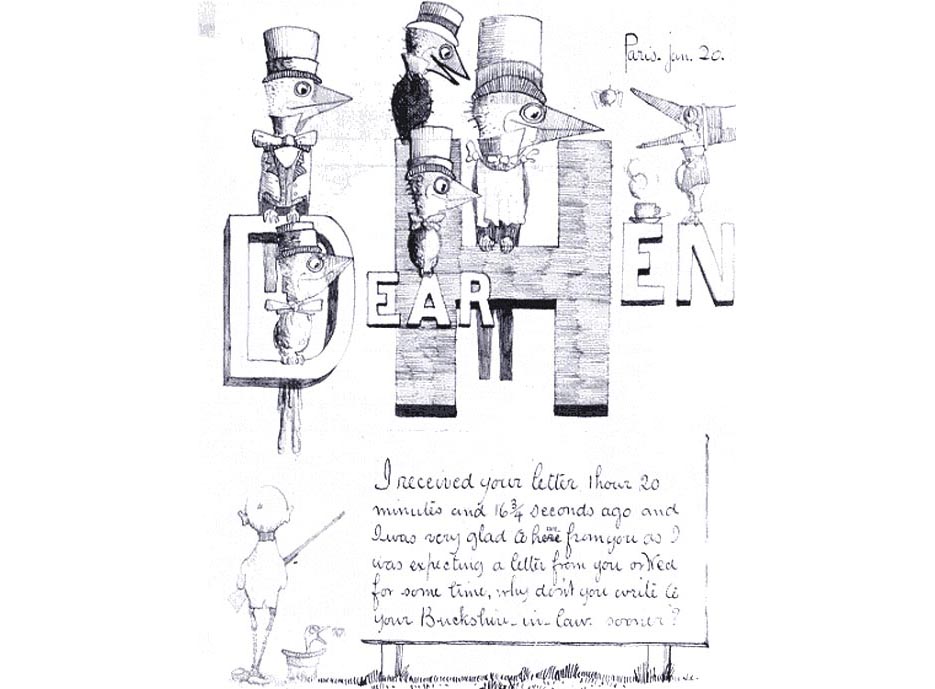 Paris. Jan. 20.
DEAR HEN
I received your letter 1 hour 20
minutes and 16¾ seconds ago and
I was very glad to here from you as I
was expecting a letter from you or Ned
for some time, why don't you write to
your in-law sooner?